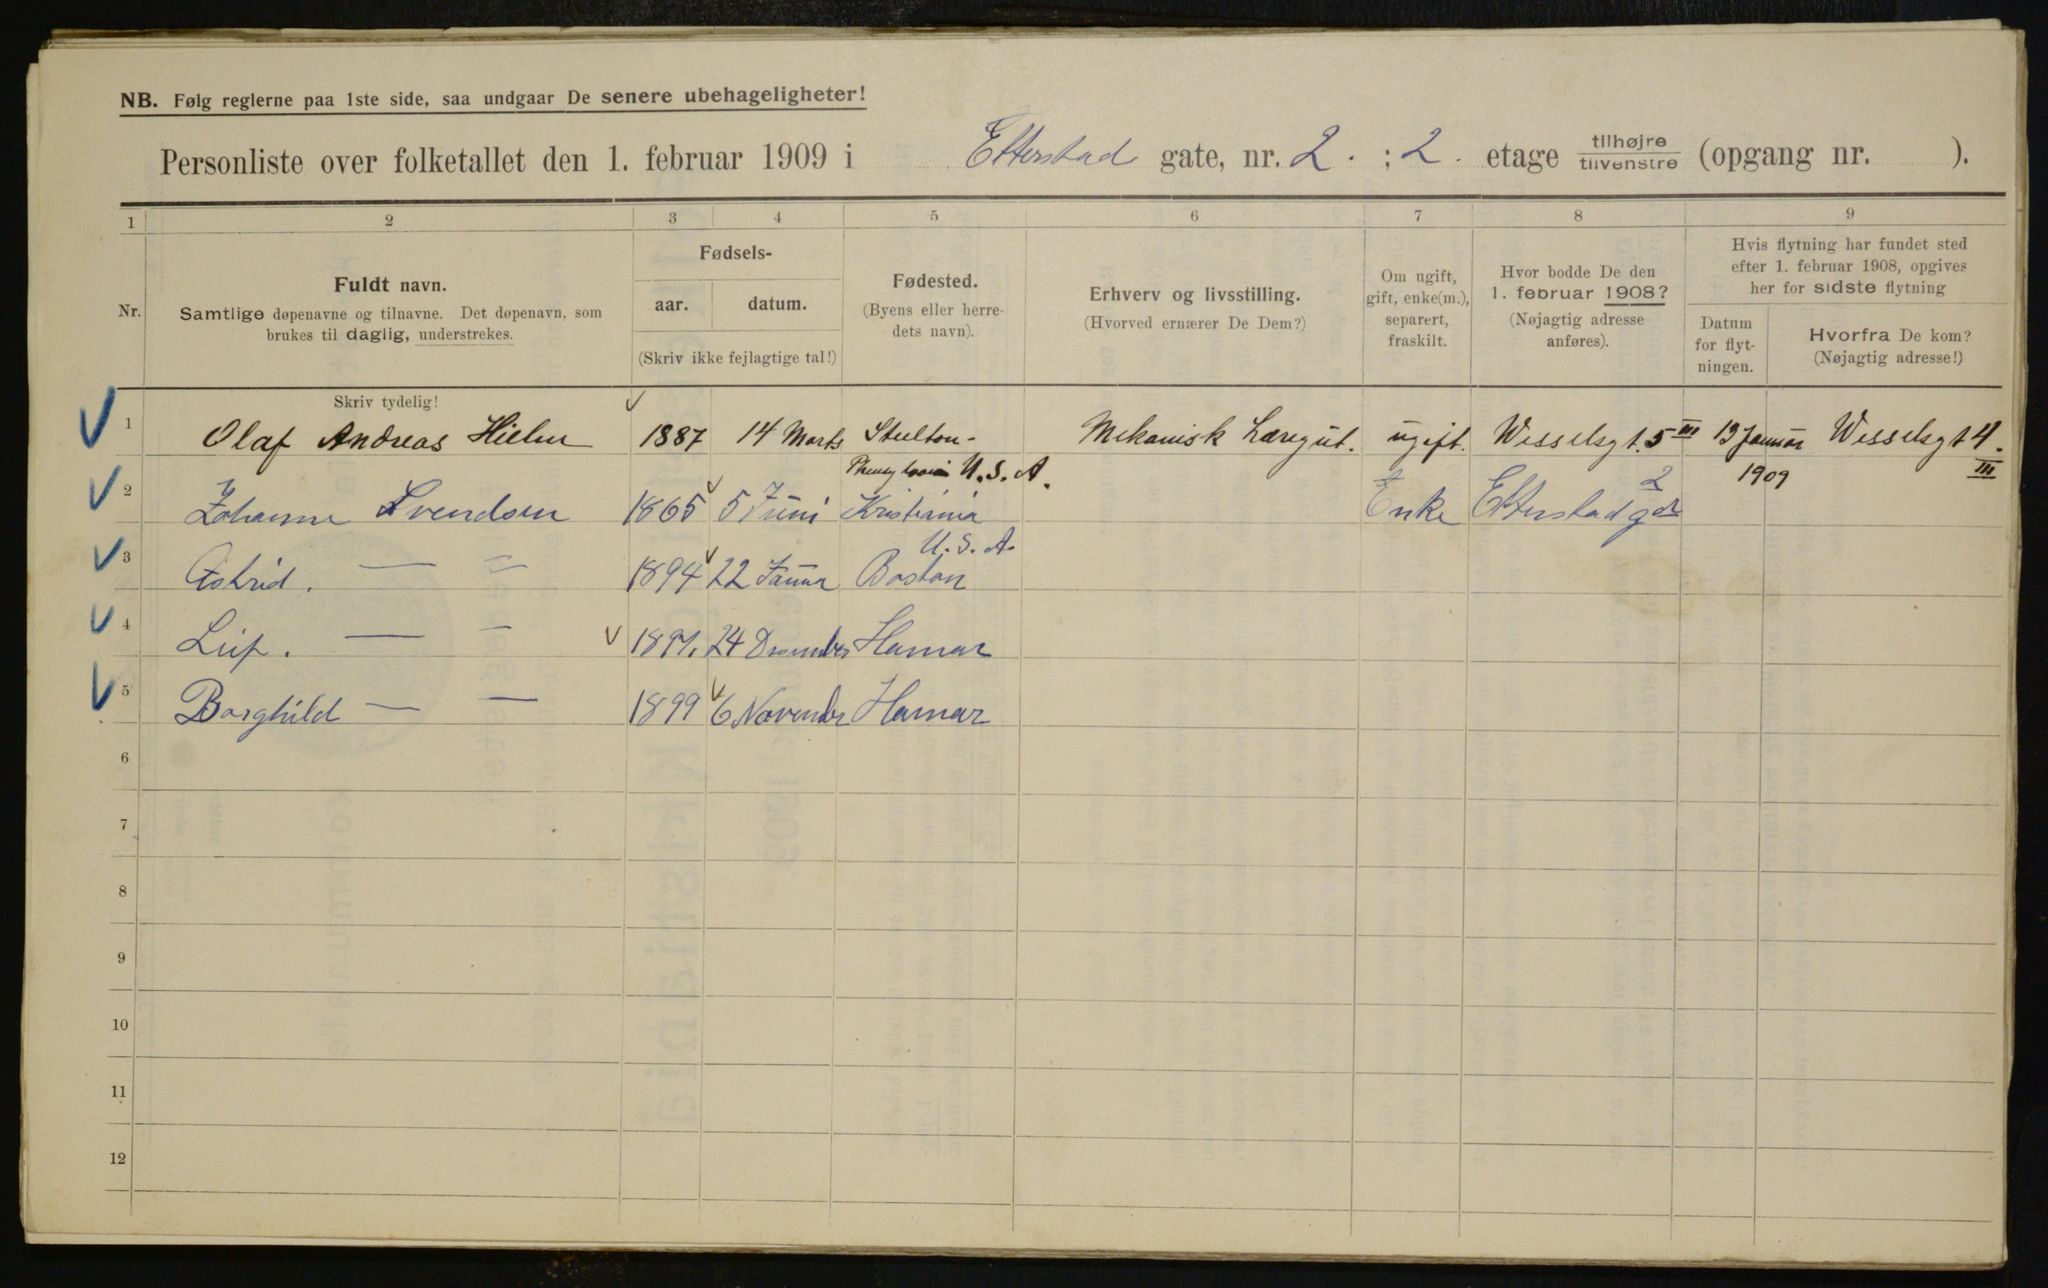 NB. Følg reglerne paa 1ste side, saa undgaar De senere ubehageligheter!
Personliste over folketallet den 1. februar 1909 i Etterstad gate, nr. 2. ; 2. etage tilhøjre tilvenstre (opgang nr. ).
1 2 3 4 5 6 7 8 9
Nr.
Fuldt navn.
Samtlige døpenavne og tilnavne. Det døpenavn, som
brukes til daglig, understrekes.
Skriv tydelig!
Fødsels-
aar. datum.
(Skriv ikke fejlagtige tal!)
Fødested.
(Byens eller herre-
dets navn).
Erhverv og livsstilling.
(Hvorved ernærer De Dem?)
Om ugift,
gift, enke(m.),
separert,
fraskilt.
Hvor bodde De den
1. februar 1908?
(Nøjagtig adresse
anføres).
Hvis flytning har fundet sted
efter 1. februar 1908, opgives
her for sidste flytning
Datum
for flyt-
ningen.
Hvorfra De kom?
(Nøjagtig adresse!)
1 Olaf Andreas 1887 14 Marts Steelton- Mekanisk Læregut. ugift. Wesselsgt. 5 III 13 Januar Wesselsgt 4.
U. S. A. 1909 III
2 Johanne Svendsen 1865 5 Juni Kristiania Enke Etterstad gd 2
U. S. A.
3 Astrid. — — 1894 22 Januar Boston
4 Leif. — — 1897. 24 Desember Hamar
5 Borghild — — 1899 6 November Hamar
6
7
8
9
10
11
12